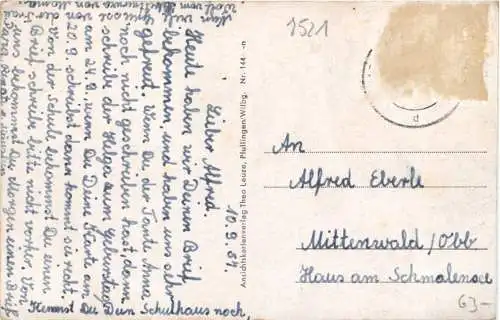 1521
10.9.54
Lieber Alfred.
Heute haben wir Deinen Brief
bekommen, und haben uns sehr
gefreut. Wenn Du der Tante Anna
noch nicht geschrieben hast, dann
schreibe der Helga zum Geburtstag
am 24.9. wenn Du Deine Karte am
20.9. schreibst dann kommt sie recht.
Von der Schule bekommst Du einen
Brief, schreibe bitte nicht vorher. Von
uns bekommst Du Morgen einen Brief
Kennst Du Dein Schulhaus noch,
Ansichtkartenverlag Theo Lauxe, Pfullingen/Wttbg. Nr. 144 -n
d
An
Alfred Eberle
Mittenwald/Obb
Haus am Schmalensee
G3-